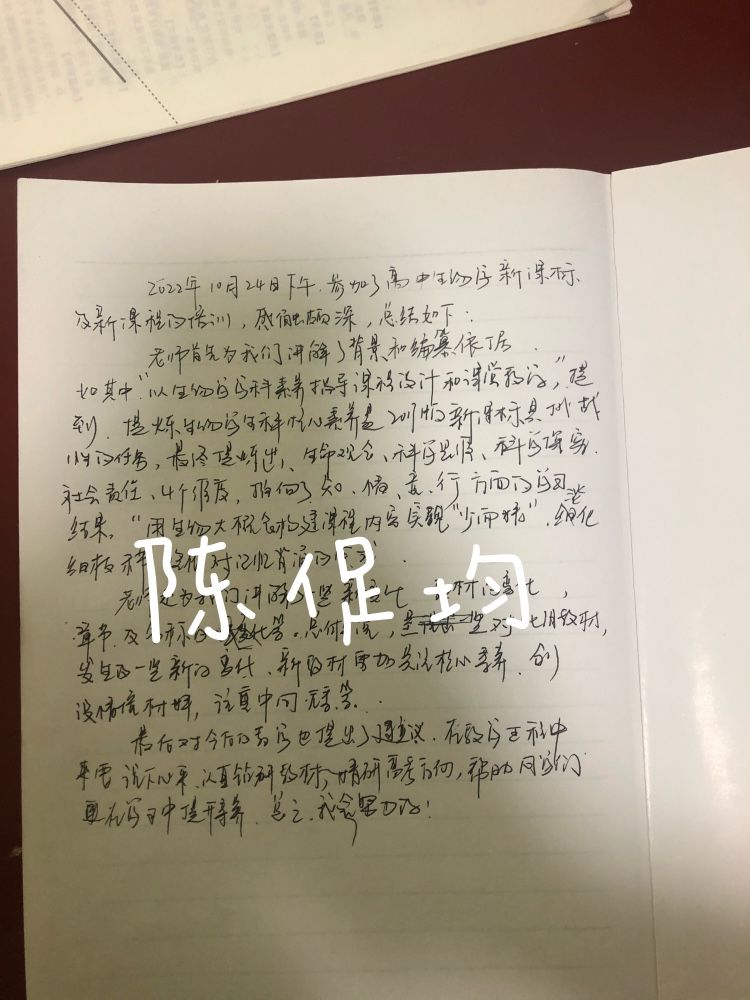 2022年10月24日下午.参加了高中生物学新课标
及新课程的培训，感触颇深，总结如下：
老师首先为我们讲解了背景和编纂依据.
如其中"以生物学学科素养指导课程设计和课堂教学",提
到.提炼生物学学科核心素养是2017版新课标具挑战
性的任务，最终提炼出、生命观念、科学思维、科学探究.
社会责任、4个维度，指向了知、情、意、行方面的学习
结果."用生物大概念构建课程内容实现"少而精".
细枝末 对记忆
老师 为我们讲解 教材的变化，
章节及 总体 是 对 教材，
发生的一些新的变化、新教材更加关注核心素养.创
设情境材料，注重中 等.
最后对今后的教学也提出了建议.在教学过程中
要 心来.认真钻研教材,精研高考方向,帮助同学们
更在学习中提升素养.总之.我会努力的!
陈促均